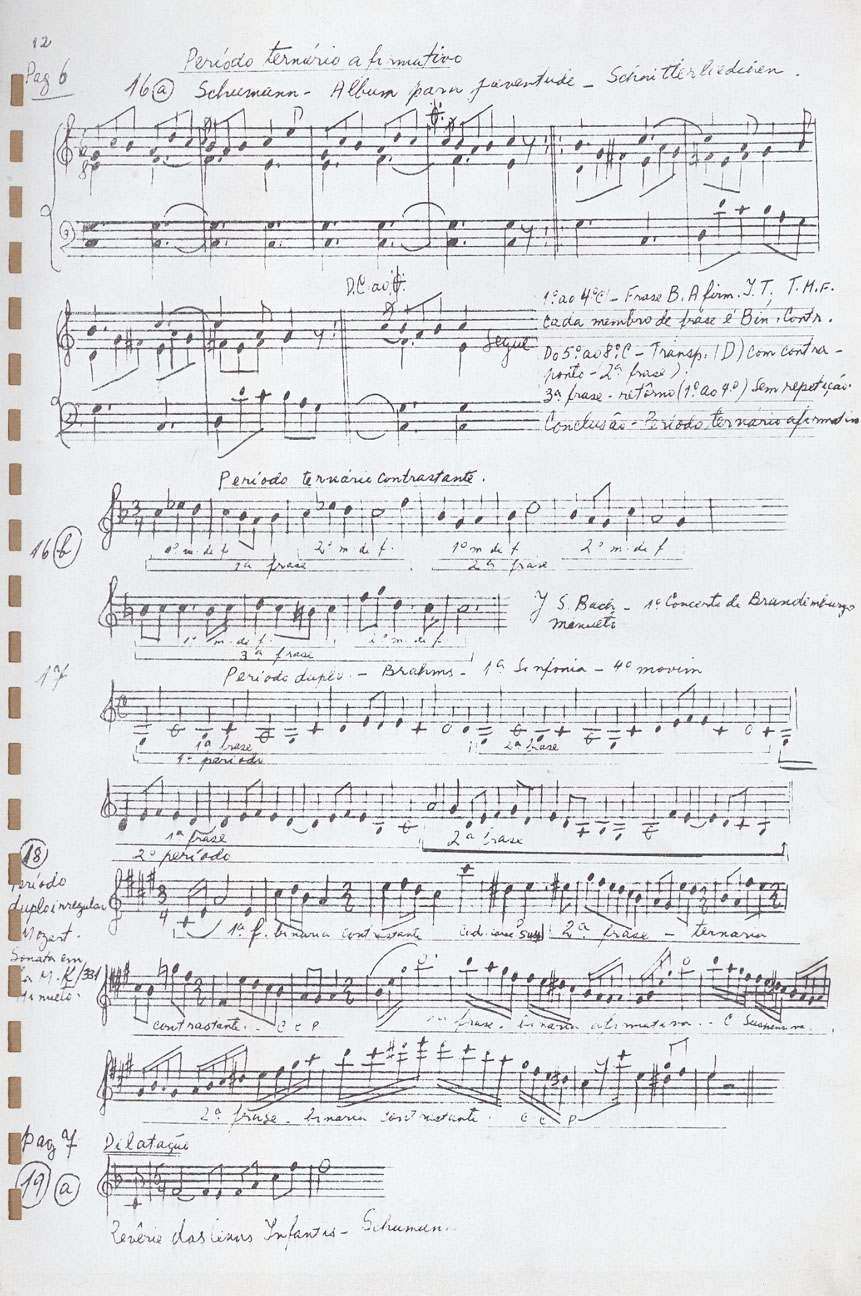 12
Período ternário afirmativo
Pag 6
16 a Schumann - Album para juventude - Schnitterliedchen.
D.C. ao
1º ao 4º C - Frase B. Afirm. I.T, T.M.F.
cada membro de frase é Bin. Contr.
Segue
Do 5º ao 8º C - Transp. (D) com contra-
ponto - 2ª frase).
3ª frase - retôrno (1º ao 4º) Sem repetição.
Conclusão - Período ternário afirmativo
Período ternário contrastante.
16 b
1º m. de f 2º m. de f. 1º m de f 2º m de f
1ª frase 2ª frase
J S. Bach - 1º Concerto de Brandemburgo
menueto.
1º m. de f. 2º m. de f.
3ª frase
17
Período duplo - Brahms - 1ª Sinfonia - 4º movim
1ª frase 2ª frase
1º período
1ª frase 2ª frase
2º período
18
Período
duplo irregular
Mozart.
Sonata em
La M. K/331
Minueto.
1ª f. binaria contrastante 2ª frase - ternaria
contrastante. C C P frase. binaria afirmativa. C Suspensiva.
2ª frase - binaria contrastante. C C P
pag 7 Dilatação
19 a
Revêrie das Cenas Infantis - Schumann